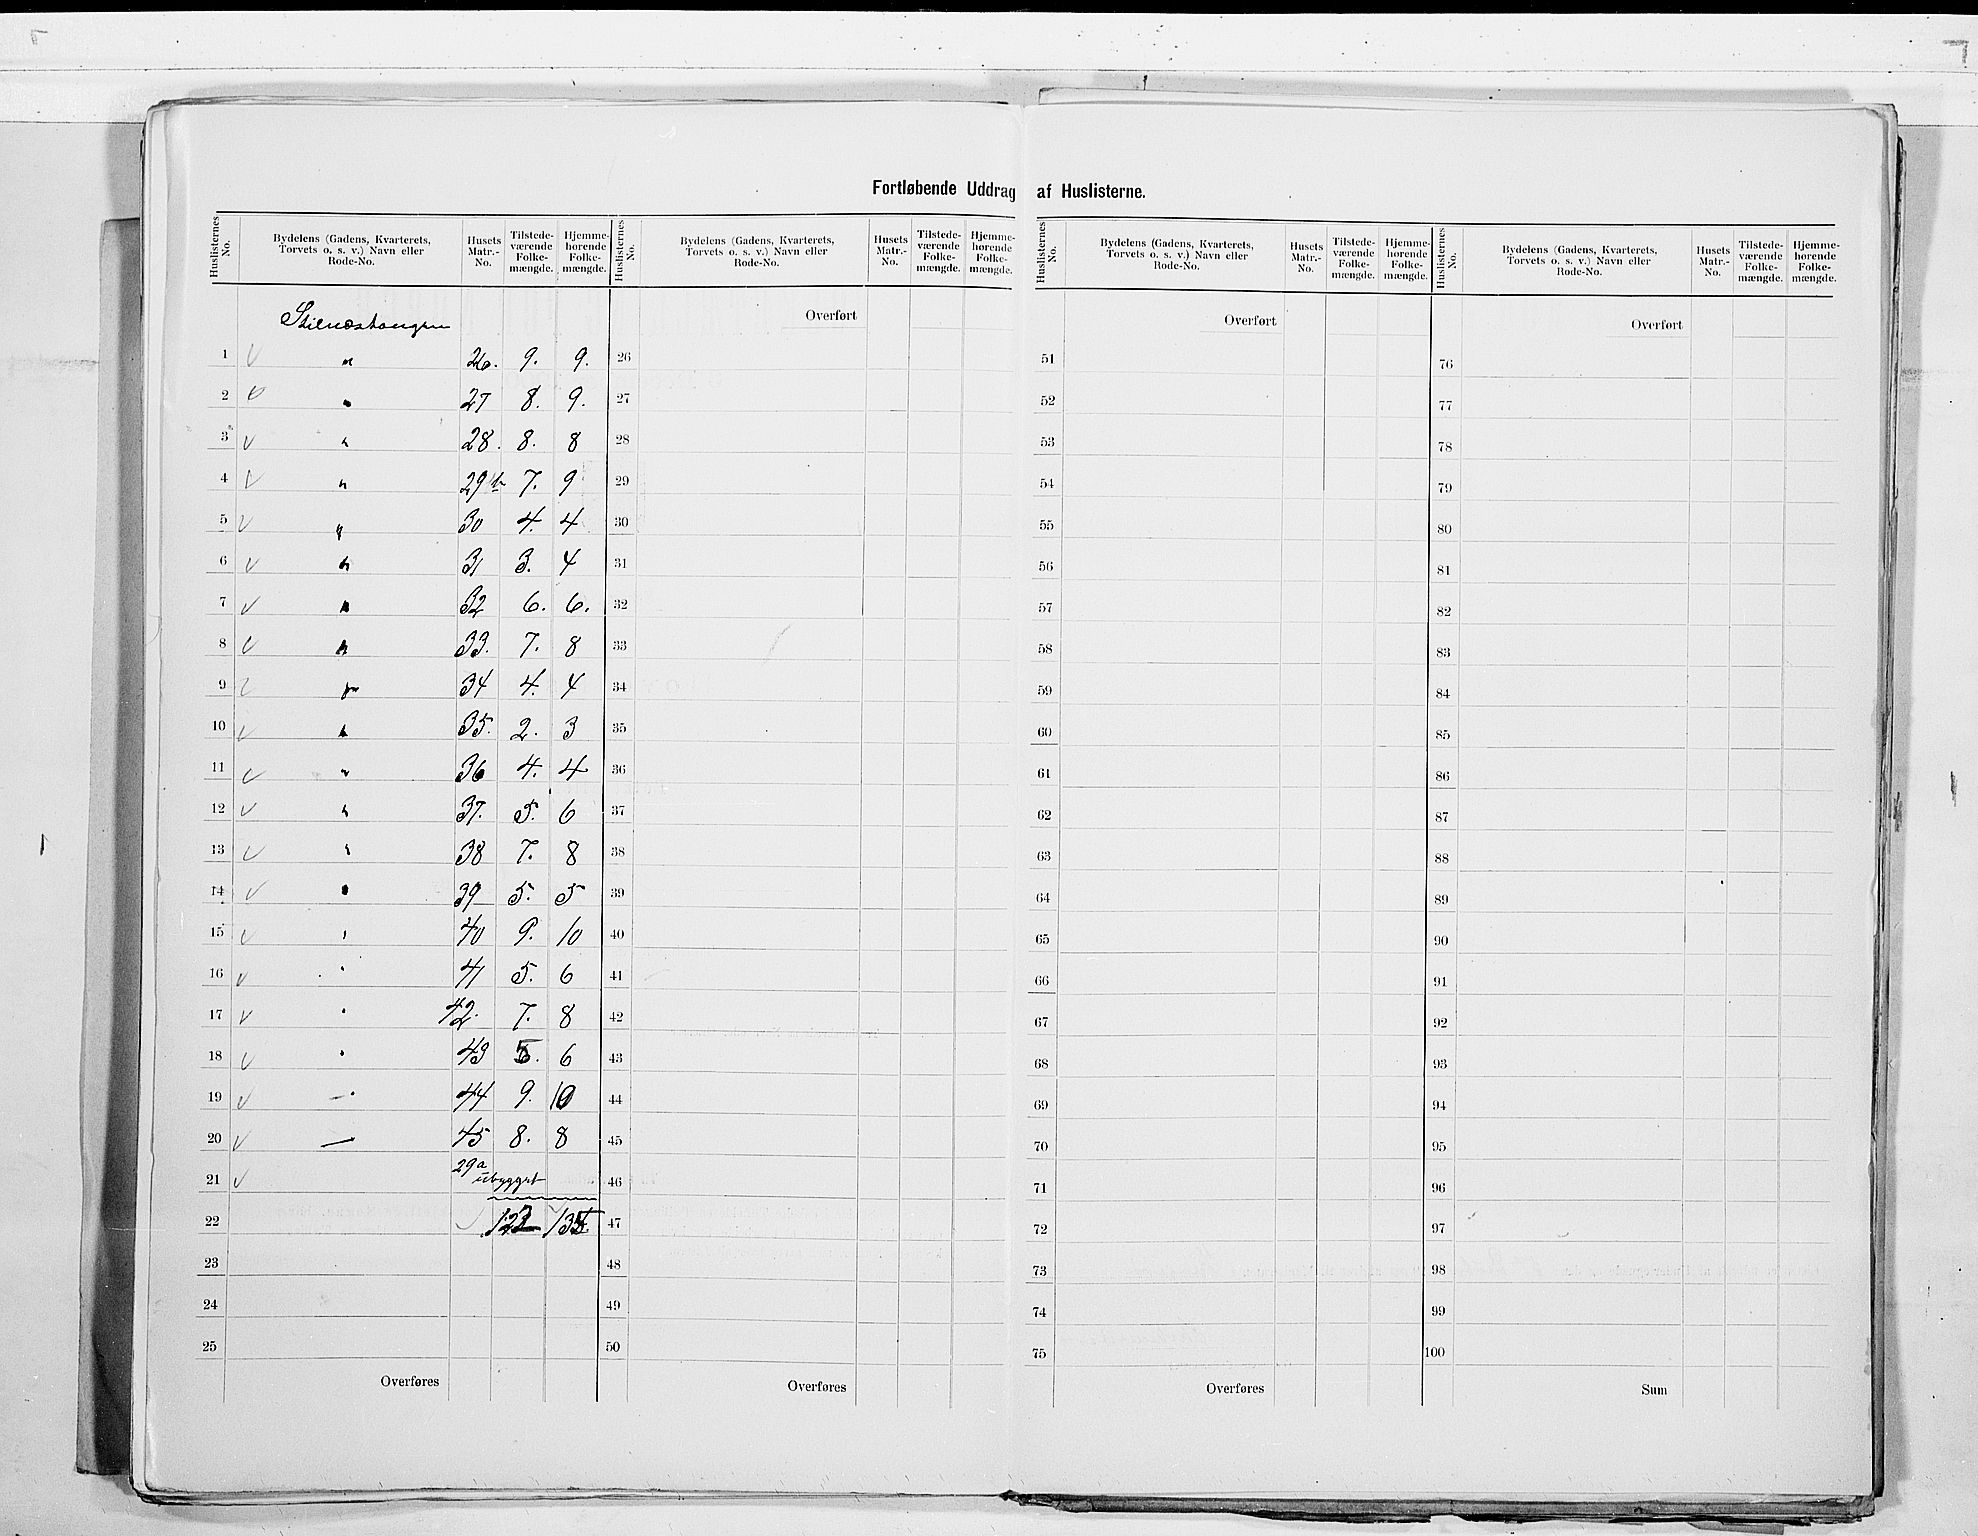 Fortløbende Uddrag af Huslisterne.
Huslisternes No. | Bydelens (Gadens, Kvarterets, Torvets o. s. v.) Navn eller Rode-No. | Husets Matr.-No. | Tilstede-værende Folke-mængde. | Hjemme-hørende Folke-mængde.
1 v " 26. 9. 9.
2 v " 27 8. 9.
3 v " 28. 8. 8
4 v " 29b 7. 9
5 v " 30 4. 4
6 v " 31 3. 4
7 v " 32 6. 6.
8 v " 33. 7. 8
9 v " 34 4. 4
10 v " 35. 2. 3
11 v " 36 4. 4
12 v " 37. 5. 6
13 v " 38 7. 8
14 v " 39 5. 5
15 v " 40 9. 10
16 v " 41 5. 6
17 v " 42. 7. 8
18 v " 43 5. 6
19 v " 44 9. 10
20 v — 45 8. 8
21 v 29a ubygget
22 122 135.
23
24
25
Overføres
Huslisternes No. | Bydelens (Gadens, Kvarterets, Torvets o. s. v.) Navn eller Rode-No. | Husets Matr.-No. | Tilstede-værende Folke-mængde. | Hjemme-hørende Folke-mængde.
Overført
26
27
28
29
30
31
32
33
34
35
36
37
38
39
40
41
42
43
44
45
46
47
48
49
50
Overføres
Huslisternes No. | Bydelens (Gadens, Kvarterets, Torvets o. s. v.) Navn eller Rode-No. | Husets Matr.-No. | Tilstede-værende Folke-mængde. | Hjemme-hørende Folke-mængde.
Overført
51
52
53
54
55
56
57
58
59
60
61
62
63
64
65
66
67
68
69
70
71
72
73
74
75
Overføres
Huslisternes No. | Bydelens (Gadens, Kvarterets, Torvets o. s. v.) Navn eller Rode-No. | Husets Matr.-No. | Tilstede-værende Folke-mængde. | Hjemme-hørende Folke-mængde.
Overført
76
77
78
79
80
81
82
83
84
85
86
87
88
89
90
91
92
93
94
95
96
97
98
99
100
Sum